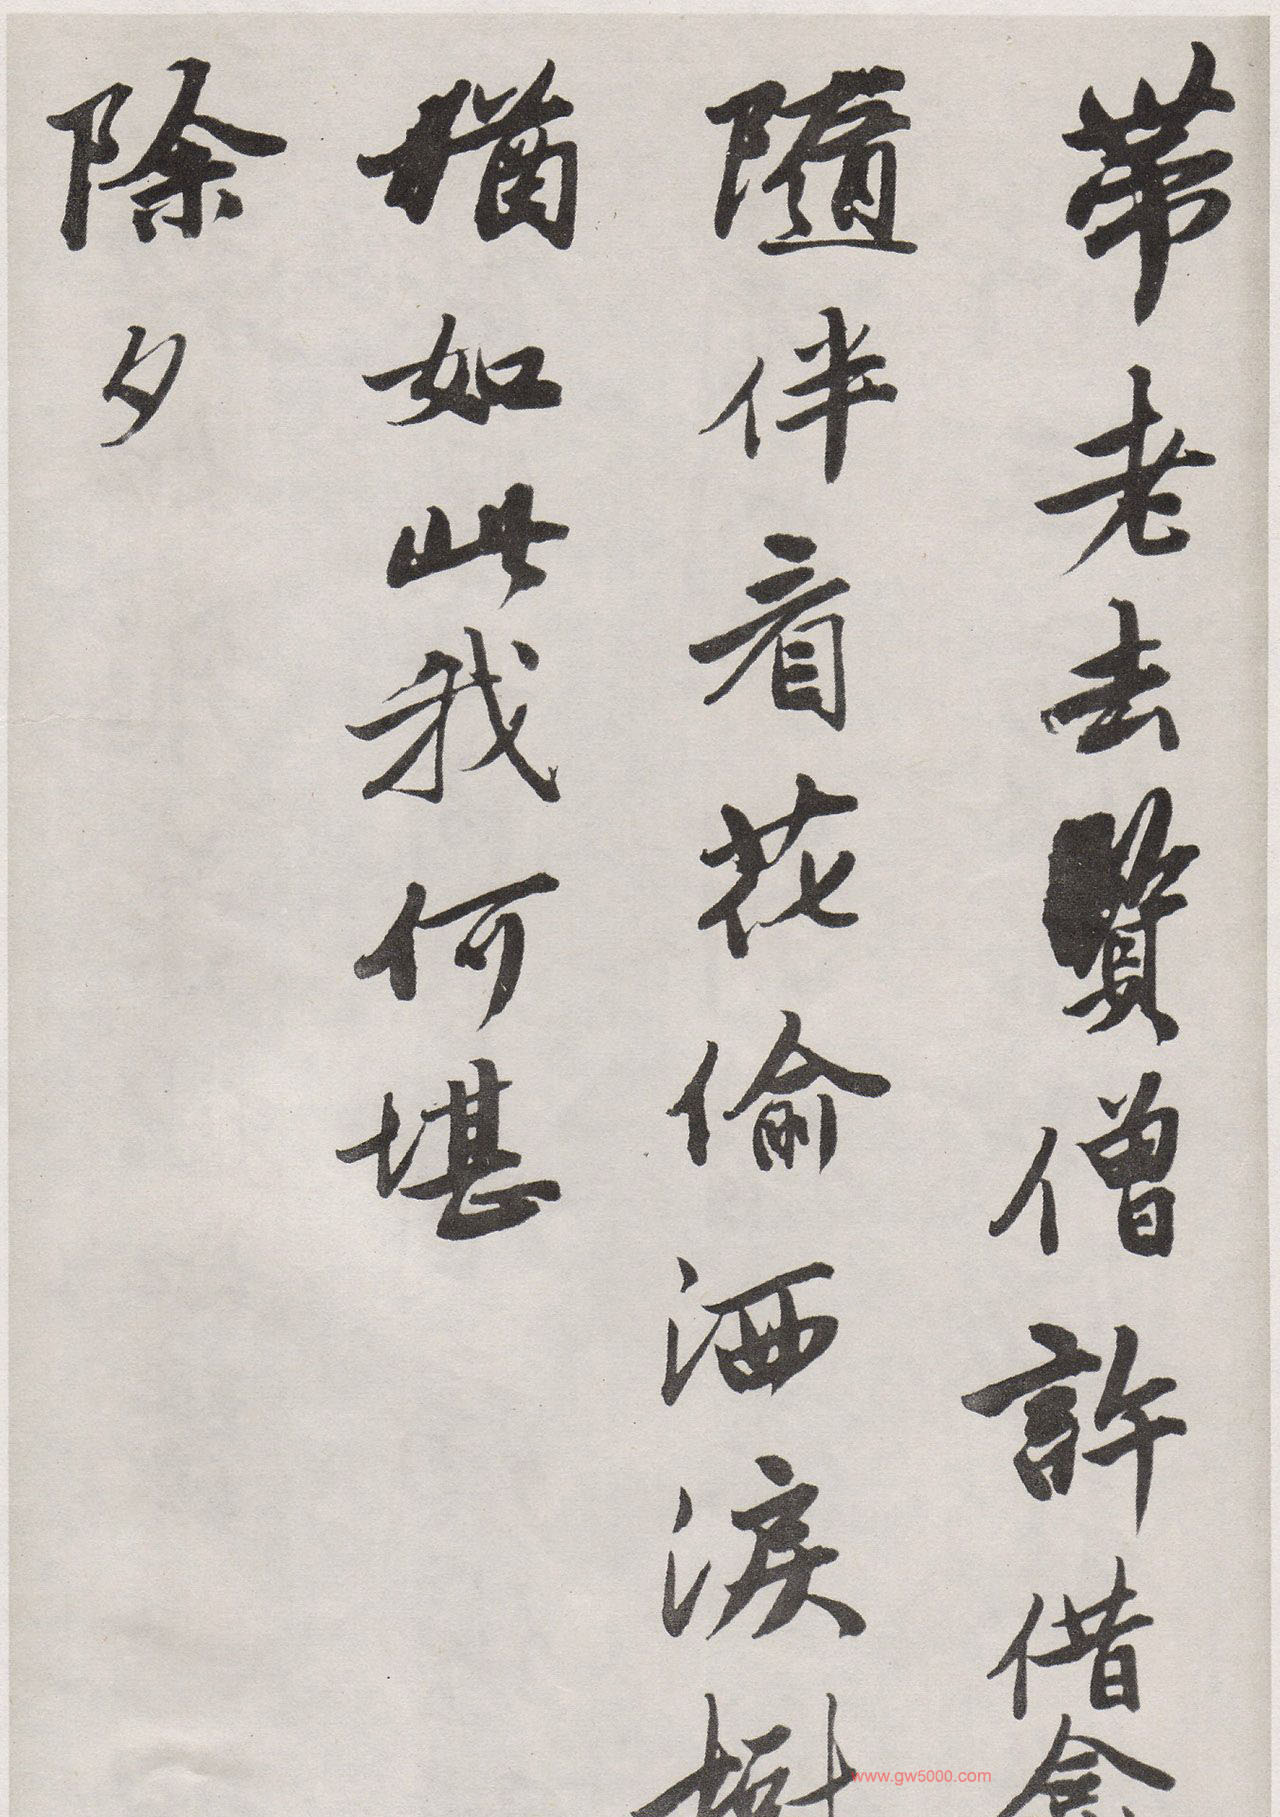 帶老去賢僧許借龕
隨伴看花偷洒淚樹
猶如此我何堪
除夕
www.gw5000.com